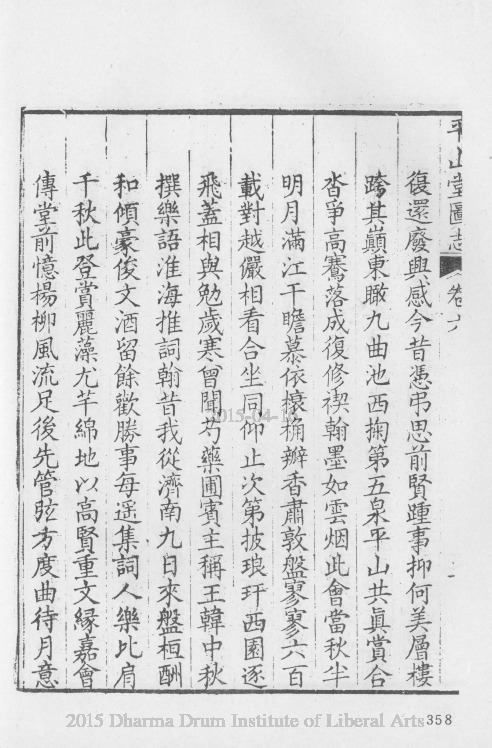 平山堂圖志
卷六
復還廢興感今昔憑弔思前賢踵事抑何美層樓
跨其巔東瞰九曲池西掬第五泉平山共真賞合
沓爭高騫落成復修禊翰墨如雲烟此會當秋半
明月滿江干瞻慕依欀桷辦香肅敦盤寥寥六百
載對越儼相看合坐同仰止次第披琅玕西園逐
飛蓋相與勉歲寒曾聞芍藥圃賓主稱王韓中秋
撰樂語淮海推詞翰昔我從濟南九日來盤桓酬
和傾豪俊文酒留餘歡勝事每遥集詞人樂比肩
千秋此登賞麗藻尤芊綿地以高賢重文緣嘉會
傳堂前憶楊柳風流足後先管弦方度曲待月意
2015-04-1
2015 Dharma Drum Institute of Liberal Arts
358